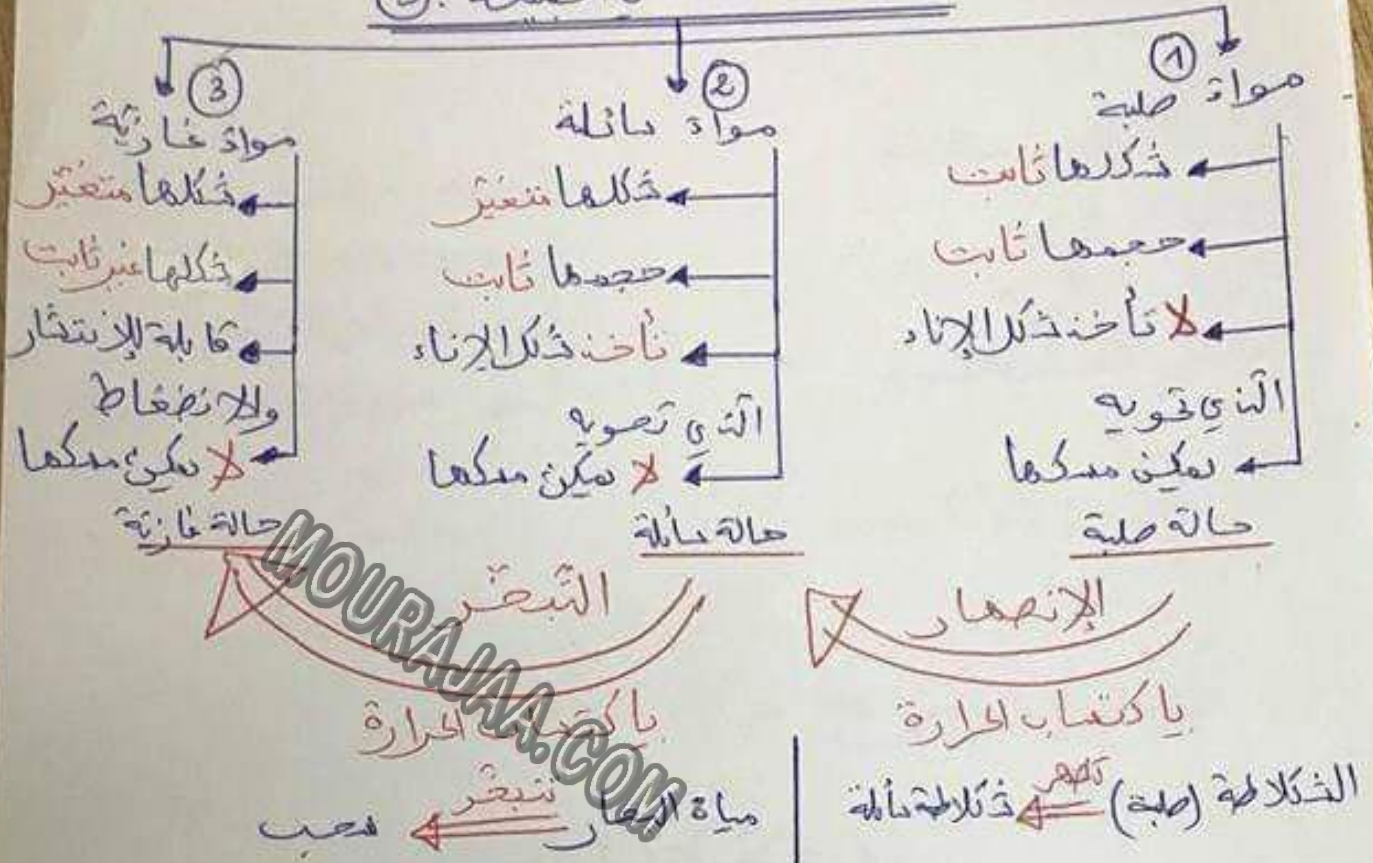 ①
مواد صلبة
شكلها ثابت
حجمها ثابت
لا تأخذ شكل الإناء
الذي تحويه
يمكن مسكها
حالة صلبة
②
مواد سائلة
شكلها متغيّر
حجمها ثابت
تأخذ شكل الإناء
الذي تحويه
لا يمكن مسكها
حالة سائلة
③
مواد غازيّة
شكلها متغيّر
شكلها غير ثابت
قابلة للإنتشار
والانضغاط
لا يمكن مسكها
حالة غازيّة
الإنصهار
باكتساب الحرارة
التبخّر
باكتساب الحرارة
الشكلاطة (صلبة) تنصهر شكلاطة سائلة
مياه البحار تتبخّر سحب
MOURAJAA.COM